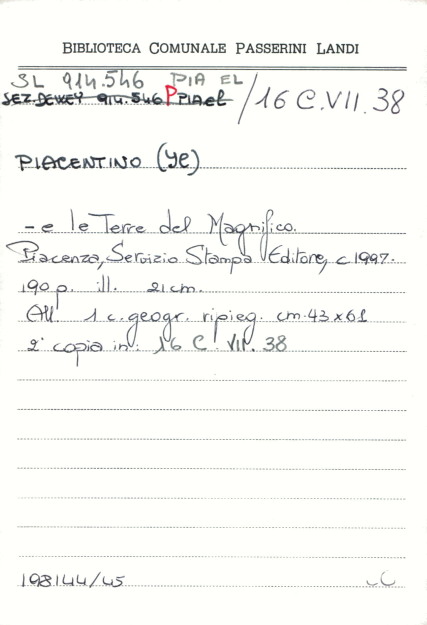 BIBLIOTECA COMUNALE PASSERINI LANDI
SL 914.546 PIA EL
SEZ.DEWEY 914.546 P PIAel /16 C.VII.38
PIACENTINO (Je)
- e le Terre del Magnifico.
Piacenza, Servizio Stampa Editore, c1997.
190 p. ill. 21 cm.
All. 1 c.geogr. ripieg. cm.43x61
2ª copia in: 16 C. VII. 38
198144/45